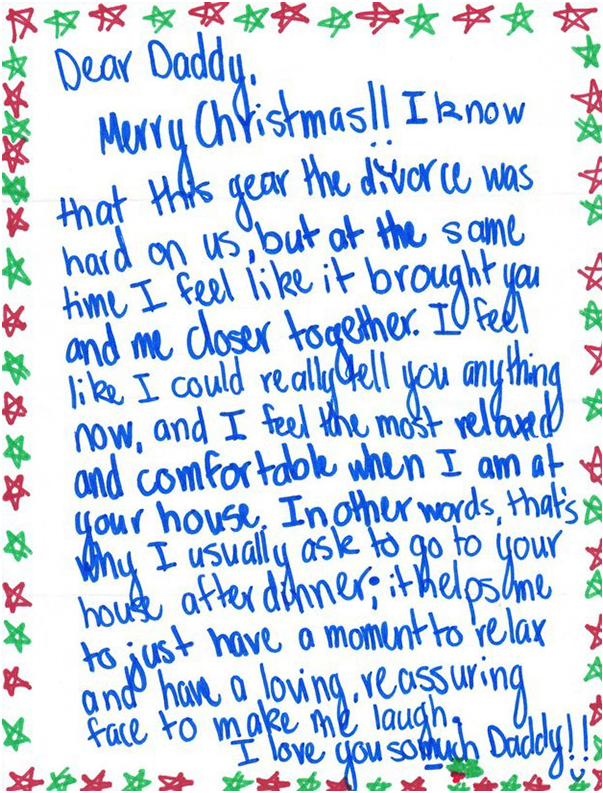 Dear Daddy,
Merry Christmas!! I know
that this year the divorce was
hard on us, but at the same
time I feel like it brought you
and me closer together. I feel
like I could really tell you anything
now, and I feel the most relaxed
and comfortable when I am at
your house. In other words, that's
why I usually ask to go to your
house after dinner; it helps me
to just have a moment to relax
and have a loving, reassuring
face to make me laugh.
I love you so much Daddy!!